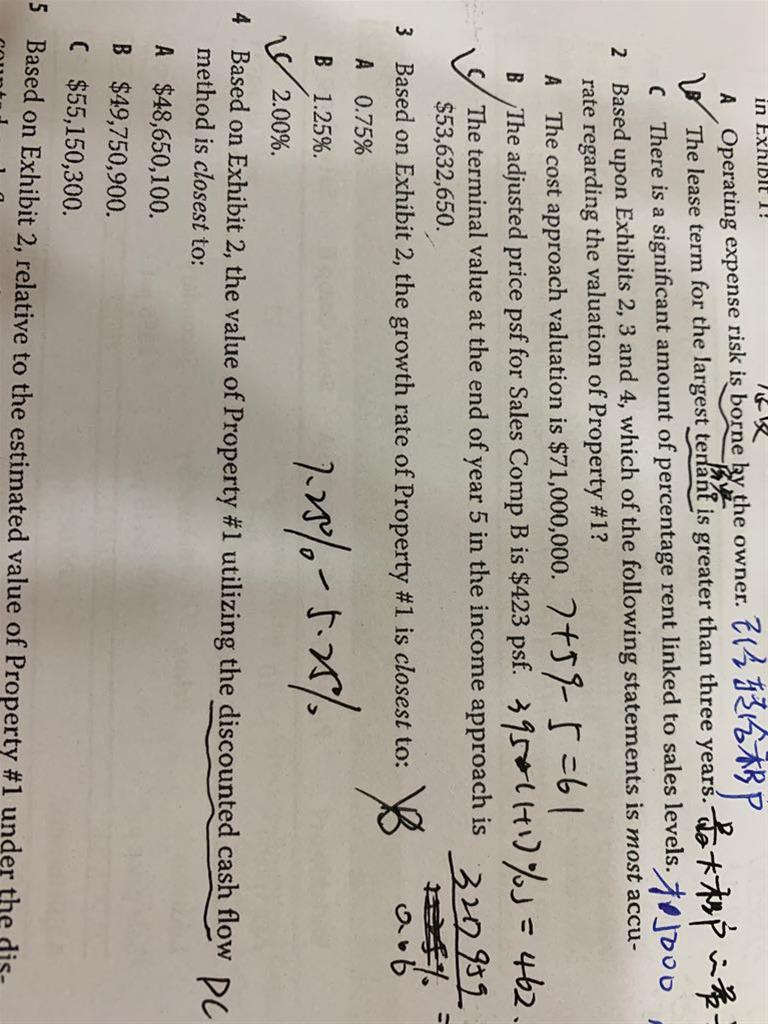 in Exhibit 1?
A Operating expense risk is borne by the owner.
B The lease term for the largest tenant is greater than three years. 最大租户
C There is a significant amount of percentage rent linked to sales levels.
2 Based upon Exhibits 2, 3 and 4, which of the following statements is most accu-
rate regarding the valuation of Property #1?
A The cost approach valuation is $71,000,000. 7+59-5=61
B The adjusted price psf for Sales Comp B is $423 psf. = 462.
C The terminal value at the end of year 5 in the income approach is
$53,632,650.
3 Based on Exhibit 2, the growth rate of Property #1 is closest to: B
A 0.75%
B 1.25%.
C 2.00%.
7.25%-5.25%
4 Based on Exhibit 2, the value of Property #1 utilizing the discounted cash flow
method is closest to:
A $48,650,100.
B $49,750,900.
C $55,150,300.
5 Based on Exhibit 2, relative to the estimated value of Property #1 under the dis-